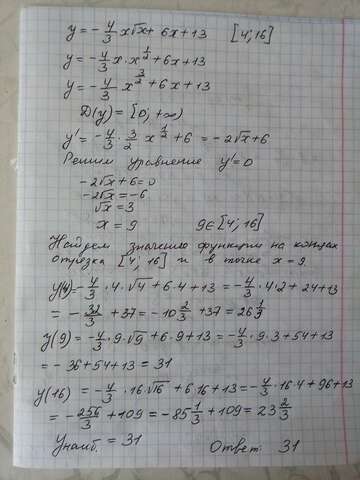 y = -4/3 x√x + 6x + 13 [4; 16]
y = -4/3 x · x^(1/2) + 6x + 13
y = -4/3 x^(3/2) + 6x + 13
D(y) = [0; +∞)
y' = -4/3 · 3/2 x^(1/2) + 6 = -2√x + 6
Решим уравнение y' = 0
-2√x + 6 = 0
-2√x = -6
√x = 3
x = 9 9 ∈ [4; 16]
Найдем значению функции на концах
отрезка [4; 16] и в точке x = 9
y(4) = -4/3 · 4 · √4 + 6·4 + 13 = -4/3 · 4·2 + 24+13
= -32/3 + 37 = -10 2/3 + 37 = 26 1/3
y(9) = -4/3 · 9·√9 + 6·9 + 13 = -4/3 · 9·3 + 54 + 13
= -36 + 54 + 13 = 31
y(16) = -4/3 · 16·√16 + 6·16 + 13 = -4/3 · 16·4 + 96 + 13
= -256/3 + 109 = -85 1/3 + 109 = 23 2/3
Yнаиб. = 31 Ответ: 31